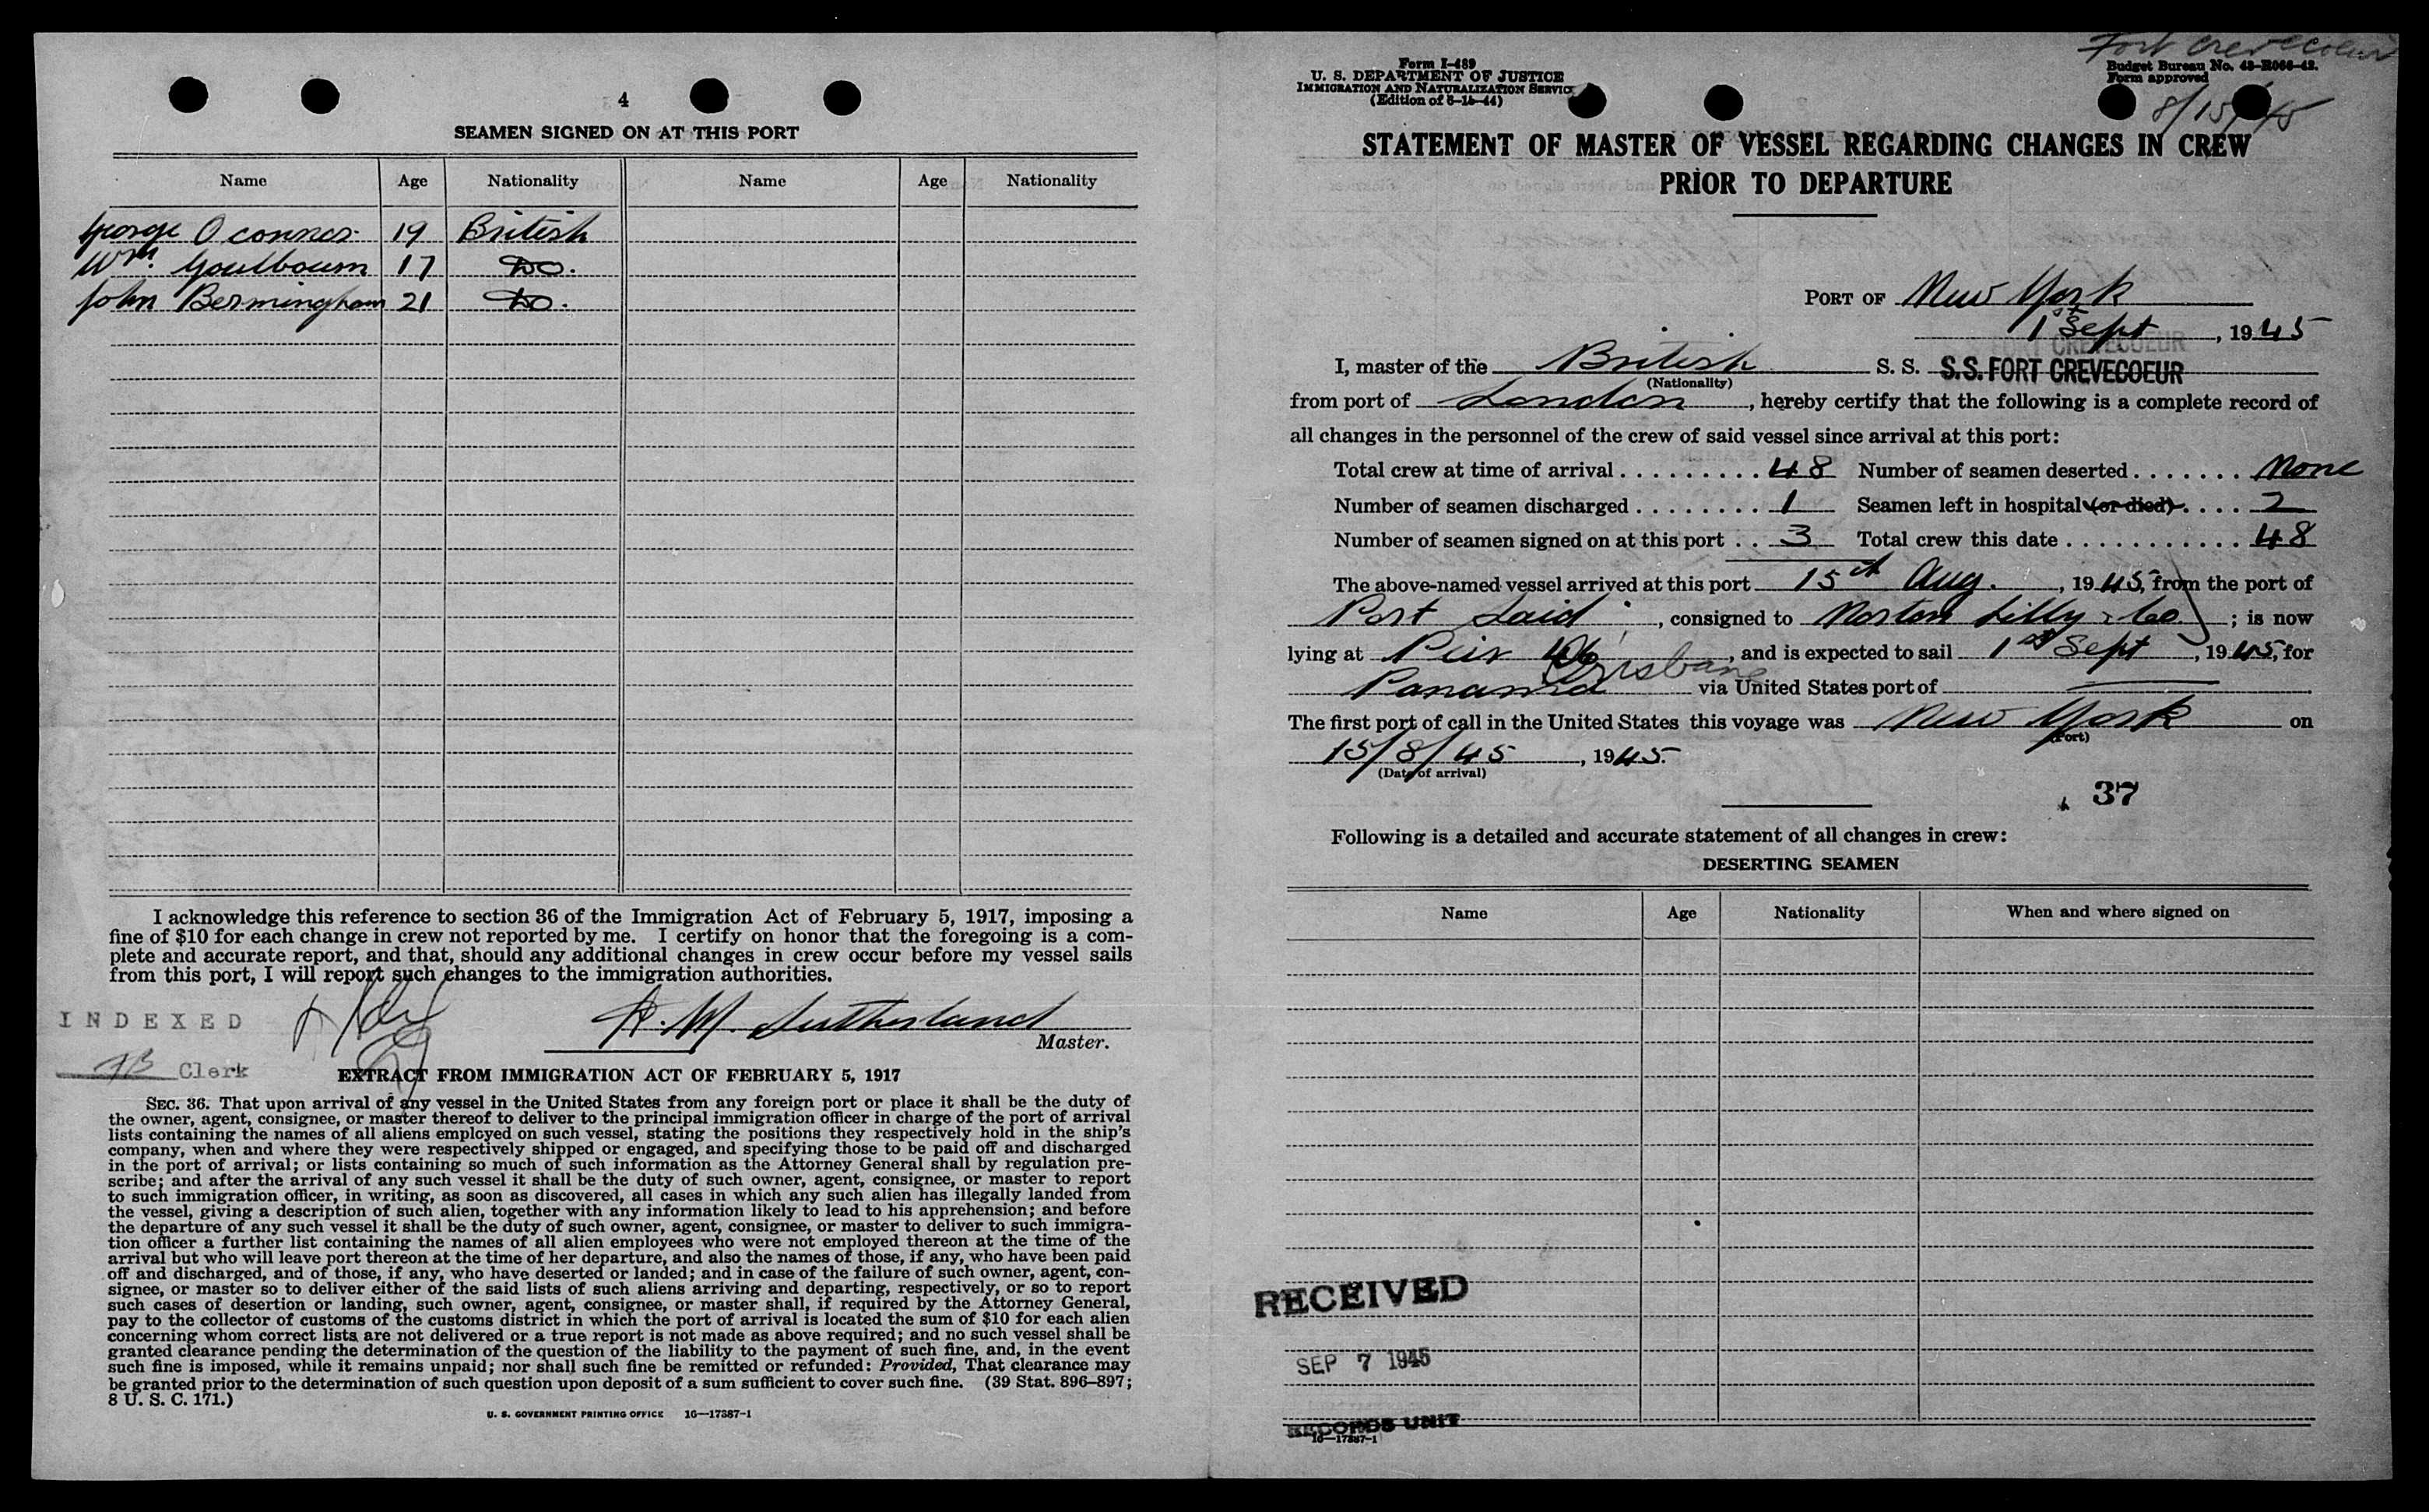 4
SEAMEN SIGNED ON AT THIS PORT
Name Age Nationality Name Age Nationality
George O connor 19 British
Wm. Goulbourn 17 Do.
John Bermingham 21 Do.
I acknowledge this reference to section 36 of the Immigration Act of February 5, 1917, imposing a
fine of $10 for each change in crew not reported by me. I certify on honor that the foregoing is a com-
plete and accurate report, and that, should any additional changes in crew occur before my vessel sails
from this port, I will report such changes to the immigration authorities.
INDEXED
Clerk
M. Sutherland
Master.
EXTRACT FROM IMMIGRATION ACT OF FEBRUARY 5, 1917
SEC. 36. That upon arrival of any vessel in the United States from any foreign port or place it shall be the duty of
the owner, agent, consignee, or master thereof to deliver to the principal immigration officer in charge of the port of arrival
lists containing the names of all aliens employed on such vessel, stating the positions they respectively hold in the ship's
company, when and where they were respectively shipped or engaged, and specifying those to be paid off and discharged
in the port of arrival; or lists containing so much of such information as the Attorney General shall by regulation pre-
scribe; and after the arrival of any such vessel it shall be the duty of such owner, agent, consignee, or master to report
to such immigration officer, in writing, as soon as discovered, all cases in which any such alien has illegally landed from
the vessel, giving a description of such alien, together with any information likely to lead to his apprehension; and before
the departure of any such vessel it shall be the duty of such owner, agent, consignee, or master to deliver to such immigra-
tion officer a further list containing the names of all alien employees who were not employed thereon at the time of the
arrival but who will leave port thereon at the time of her departure, and also the names of those, if any, who have been paid
off and discharged, and of those, if any, who have deserted or landed; and in case of the failure of such owner, agent, con-
signee, or master so to deliver either of the said lists of such aliens arriving and departing, respectively, or so to report
such cases of desertion or landing, such owner, agent, consignee, or master shall, if required by the Attorney General,
pay to the collector of customs of the customs district in which the port of arrival is located the sum of $10 for each alien
concerning whom correct lists are not delivered or a true report is not made as above required; and no such vessel shall be
granted clearance pending the determination of the question of the liability to the payment of such fine, and, in the event
such fine is imposed, while it remains unpaid; nor shall such fine be remitted or refunded: Provided, That clearance may
be granted prior to the determination of such question upon deposit of a sum sufficient to cover such fine. (39 Stat. 896–897;
8 U. S. C. 171.)
U. S. GOVERNMENT PRINTING OFFICE 16—17387-1
Fort Crevecoeur
Form I-489
U. S. DEPARTMENT OF JUSTICE
IMMIGRATION AND NATURALIZATION SERVICE
(Edition of 6-15-44)
Budget Bureau No. 43-R066-42.
Form approved
8/15/45
STATEMENT OF MASTER OF VESSEL REGARDING CHANGES IN CREW
PRIOR TO DEPARTURE
PORT OF New York
1st Sept, 1945
I, master of the British S. S. S.S. FORT CREVECOEUR
(Nationality)
from port of London, hereby certify that the following is a complete record of
all changes in the personnel of the crew of said vessel since arrival at this port:
Total crew at time of arrival . . . . . . . . . 48 Number of seamen deserted . . . . . . . None
Number of seamen discharged . . . . . . . . 1 Seamen left in hospital (or died) . . . . 2
Number of seamen signed on at this port . . 3 Total crew this date . . . . . . . . . . . . 48
The above-named vessel arrived at this port 15th Aug., 1945, from the port of
Port Said, consigned to Norton Lilly & Co; is now
lying at Pier 46, and is expected to sail 1st Sept, 1945, for
Brisbane
Panama via United States port of
The first port of call in the United States this voyage was New York on
(Port)
15/8/45, 1945.
(Date of arrival)
37
Following is a detailed and accurate statement of all changes in crew:
DESERTING SEAMEN
Name Age Nationality When and where signed on
RECEIVED
SEP 7 1945
RECORDS UNIT
16—17387-1